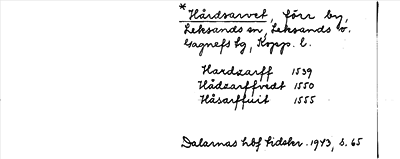 * Hårdsarvet, förr by,
Leksands sn, Leksands o.
Gagnefs tg, Kopp. l.
Hardzarff 1539
Hådzarffvedt 1550
Håsarffuit 1555
Dalarnas hbf tidskr. 1943, s. 65